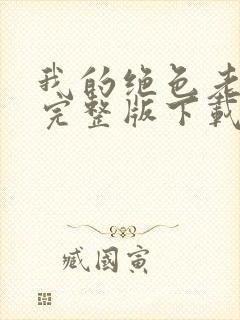 我的绝色老
完整版下载
臧国寅